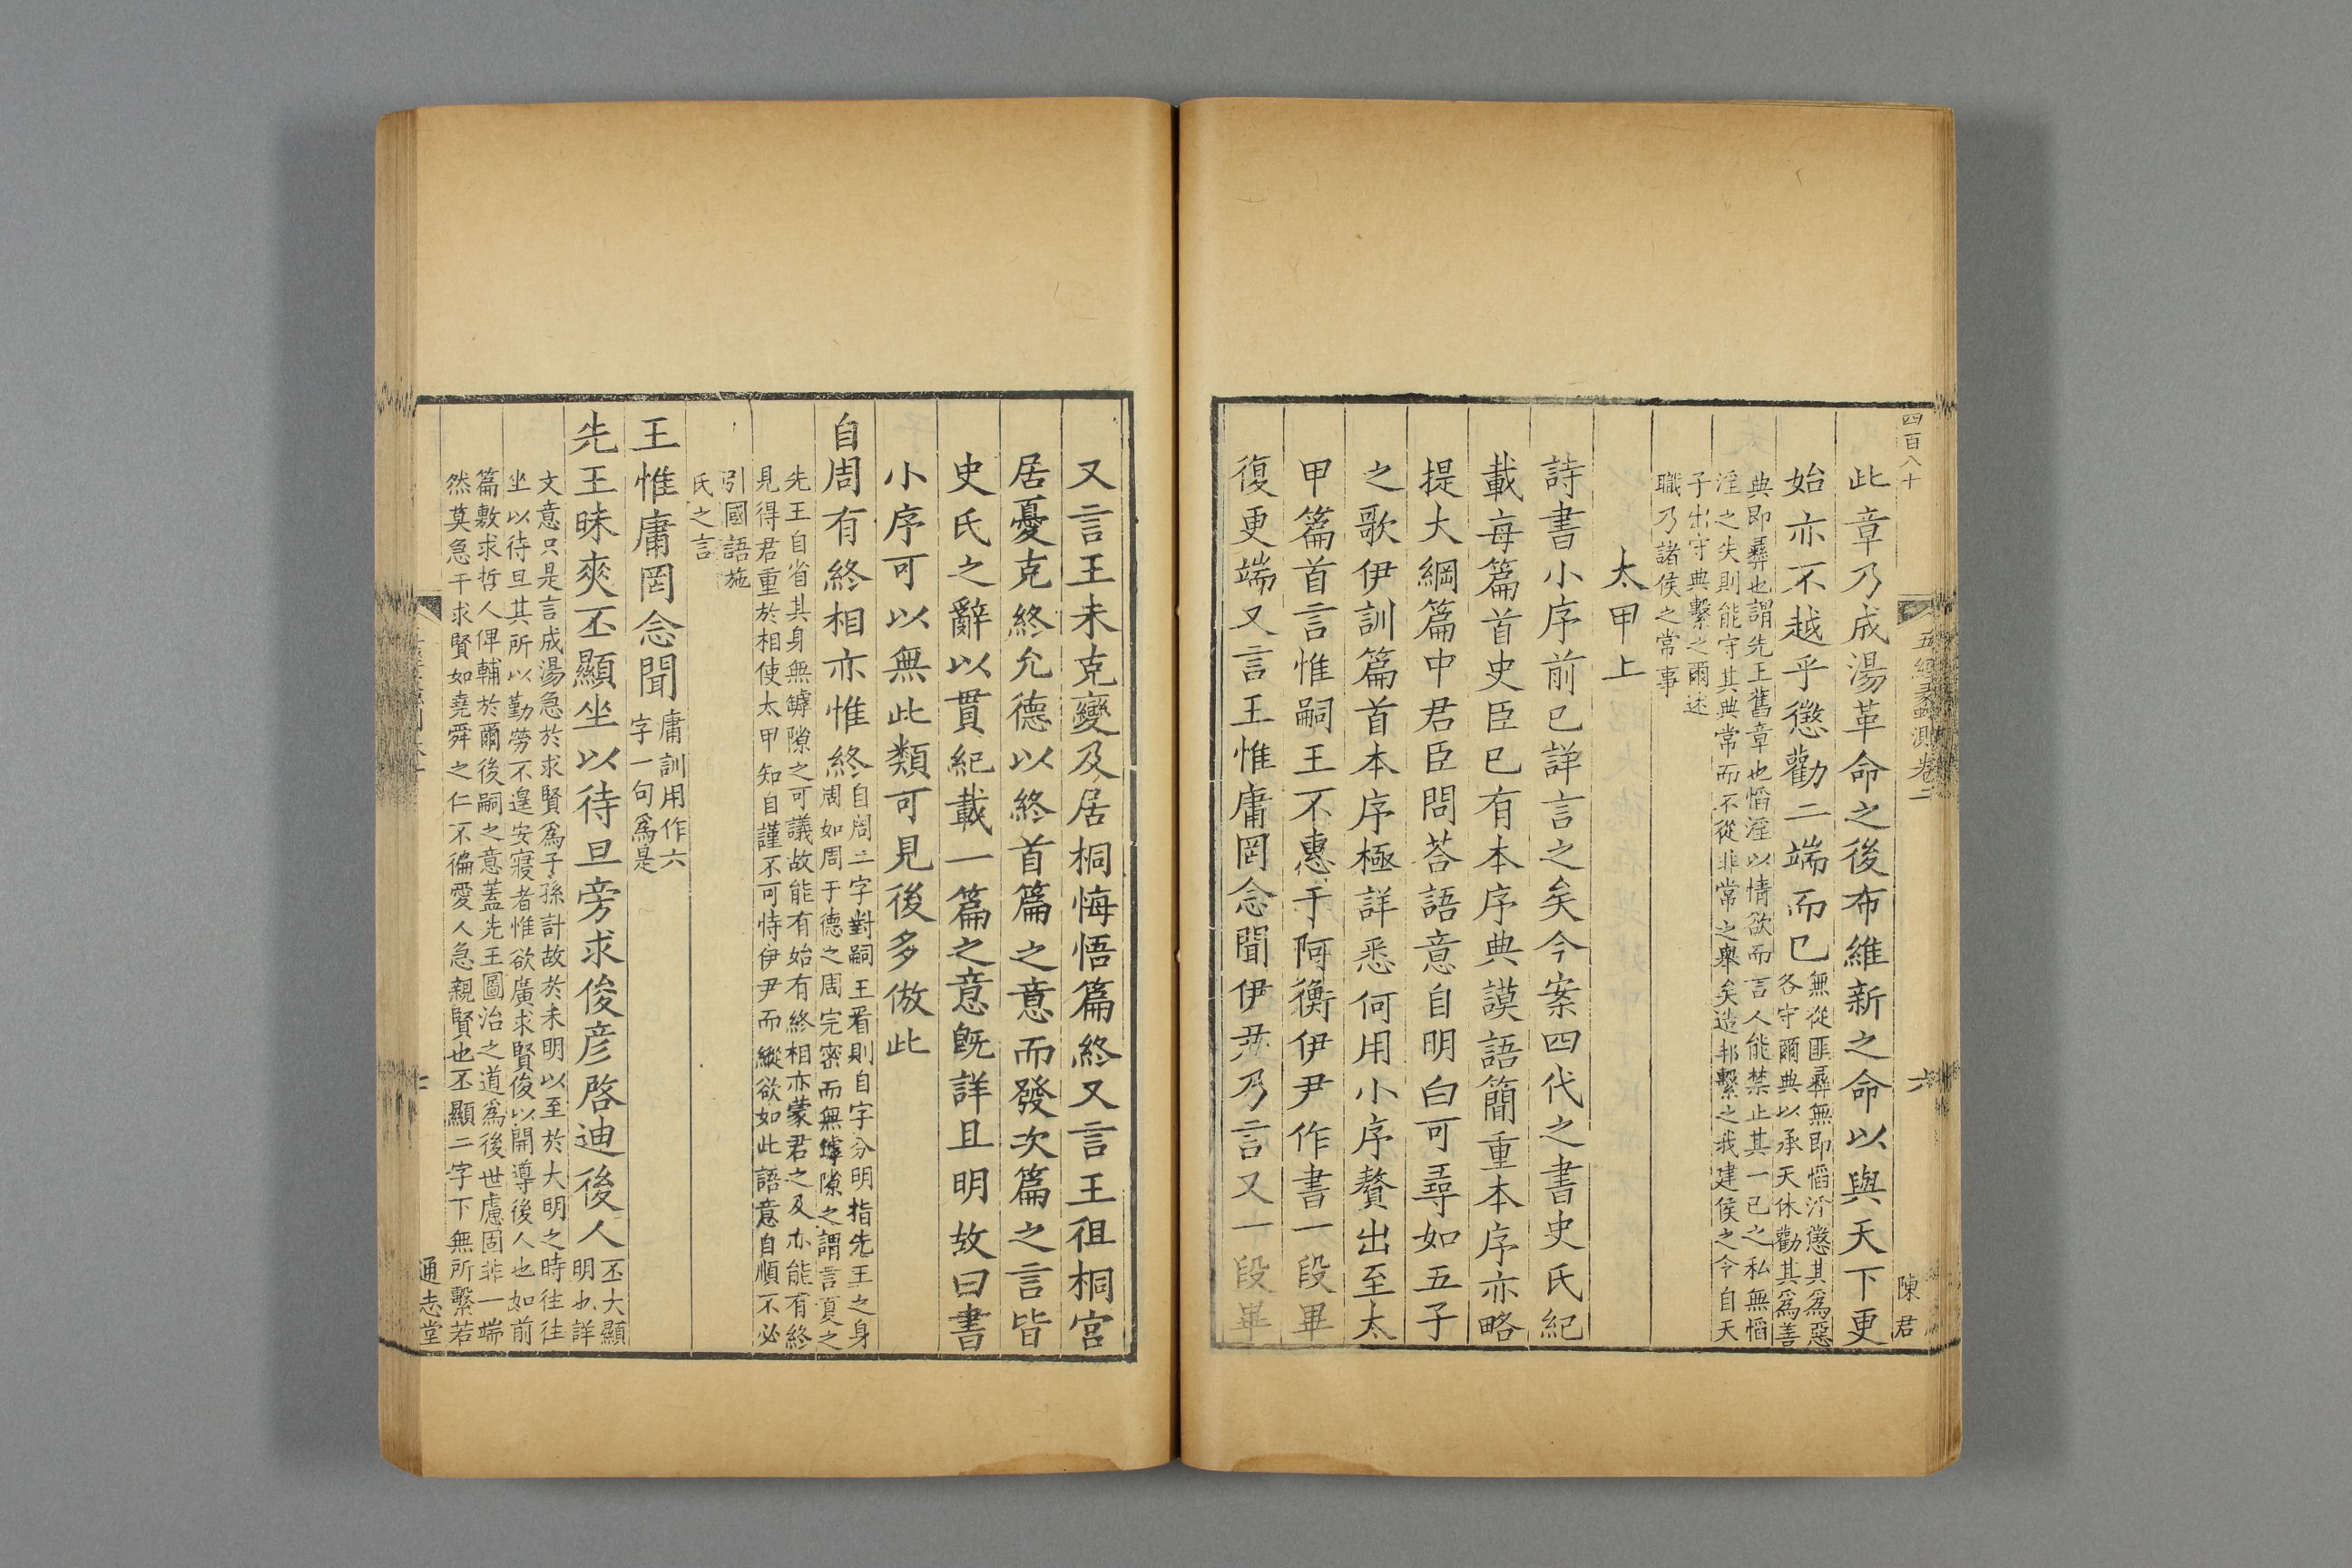 四百八十
五經蠡測卷二
六
陳君
此章乃成湯革命之後布維新之命以與天下更
始亦不越乎懲勸二端而已無從匪彝無即慆淫懲其爲惡
各守爾典以承天休勸其爲善
典即彝也謂先王舊章也慆淫以情欲而言人能禁止其一已之私無慆
淫之失則能守其典常而不從非常之舉矣造邦繫之我建侯之令自天
子出守典繫之爾述
職乃諸侯之常事
太甲上
詩書小序前已詳言之矣今案四代之書史氏紀
載每篇首史臣已有本序典謨語簡重本序亦略
提大綱篇中君臣問荅語意自明白可尋如五子
之歌伊訓篇首本序極詳悉何用小序贅出至太
甲篇首言惟嗣王不惠于阿衡伊尹作書一段畢
復更端又言王惟庸罔念聞伊尹乃言又一段畢
又言王未克變及居桐悔悟篇終又言王徂桐宮
居憂克終允德以終首篇之意而發次篇之言皆
史氏之辭以貫紀載一篇之意旣詳且明故曰書
小序可以無此類可見後多倣此
自周有終相亦惟終自周二字對嗣王看則自字分明指先王之身
周如周于德之周完密而無罅隙之謂言夏之
先王自省其身無罅隙之可議故能有始有終相亦蒙君之及亦能有終
見得君重於相使太甲知自謹不可恃伊尹而縱欲如此語意自順不必
引國語施
氏之言
王惟庸罔念聞庸訓用作六
字一句爲是
先王昧爽丕顯坐以待旦旁求俊彦啓迪後人丕大顯
明也詳
文意只是言成湯急於求賢爲子孫計故於未明以至於大明之時往往
坐以待旦其所以勤勞不遑安寢者惟欲廣求賢俊以開導後人也如前
篇敷求哲人俾輔於爾後嗣之意蓋先王圖治之道爲後世慮固非一端
然莫急于求賢如堯舜之仁不徧愛人急親賢也丕顯二字下無所繫若
通志堂